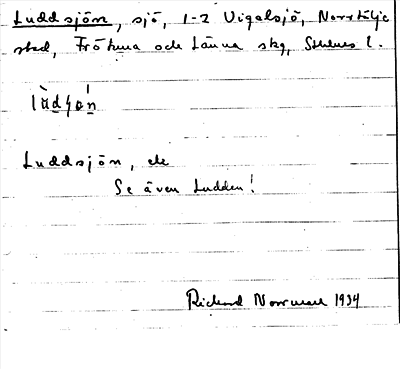 Luddsjön, sjö, 1-2 Vigelsjö, Norrtälje
stad, Frötuna och Länna skg, Sthlms l.
Luddsjön, ek
Se även Ludden!
Richard Norrman 1934